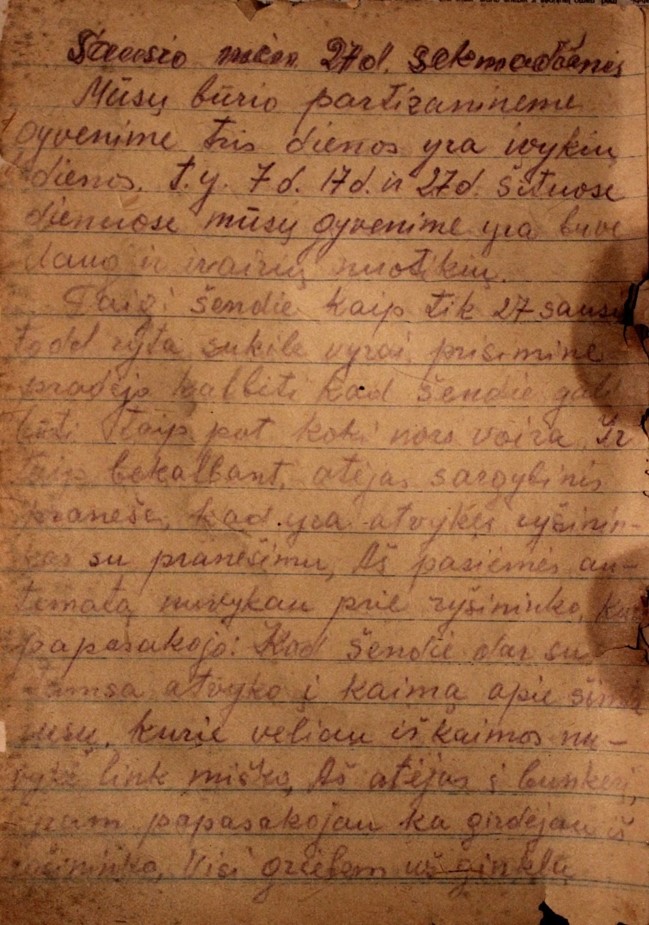 Sausio mėn 27d. sekmadienis
Mūsų būrio partizaniniame
gyvenime tris dienos yra ivykių
dienos. t.y. 7d. 17d. ir 27d. Šituose
dienuose mūsų gyvenime yra buve
daug ir ivairių nuotikių.
Taigi šendie kaip tik 27 sausi
todd ryta sukile vyrai prisimine
pradėjo kalbėti kad šendie gali
būti taip pat koki nors voina. Ir
taip bekalbant, atėjas sargybinis
pranešė, kad yra atvykęs ryšinin-
kas su pranešimu, Aš pasiėmęs au-
tomatą nuvykau prie ryšininko, kur
papasakojo: Kad šendie dar su
tamsa atvyko į kaimą apie šimtą
rusų, kurie veliau iš kaimos nu-
vyko link miško, Aš atėjas į bunkerį,
papasakojau ka girdėjau iš
ryšininko, Visi griebem už ginklų